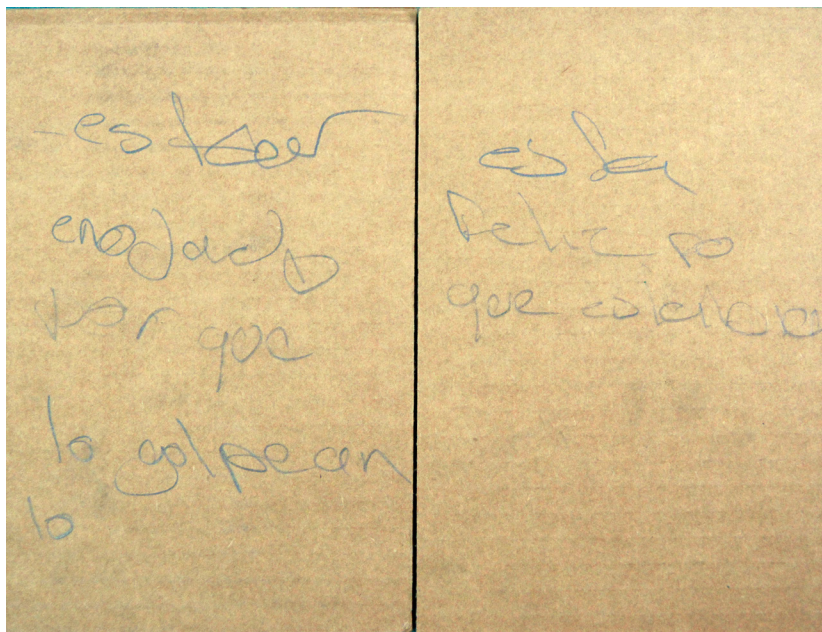 enojado
por que
lo golpean
lo
esta
feliz po
que